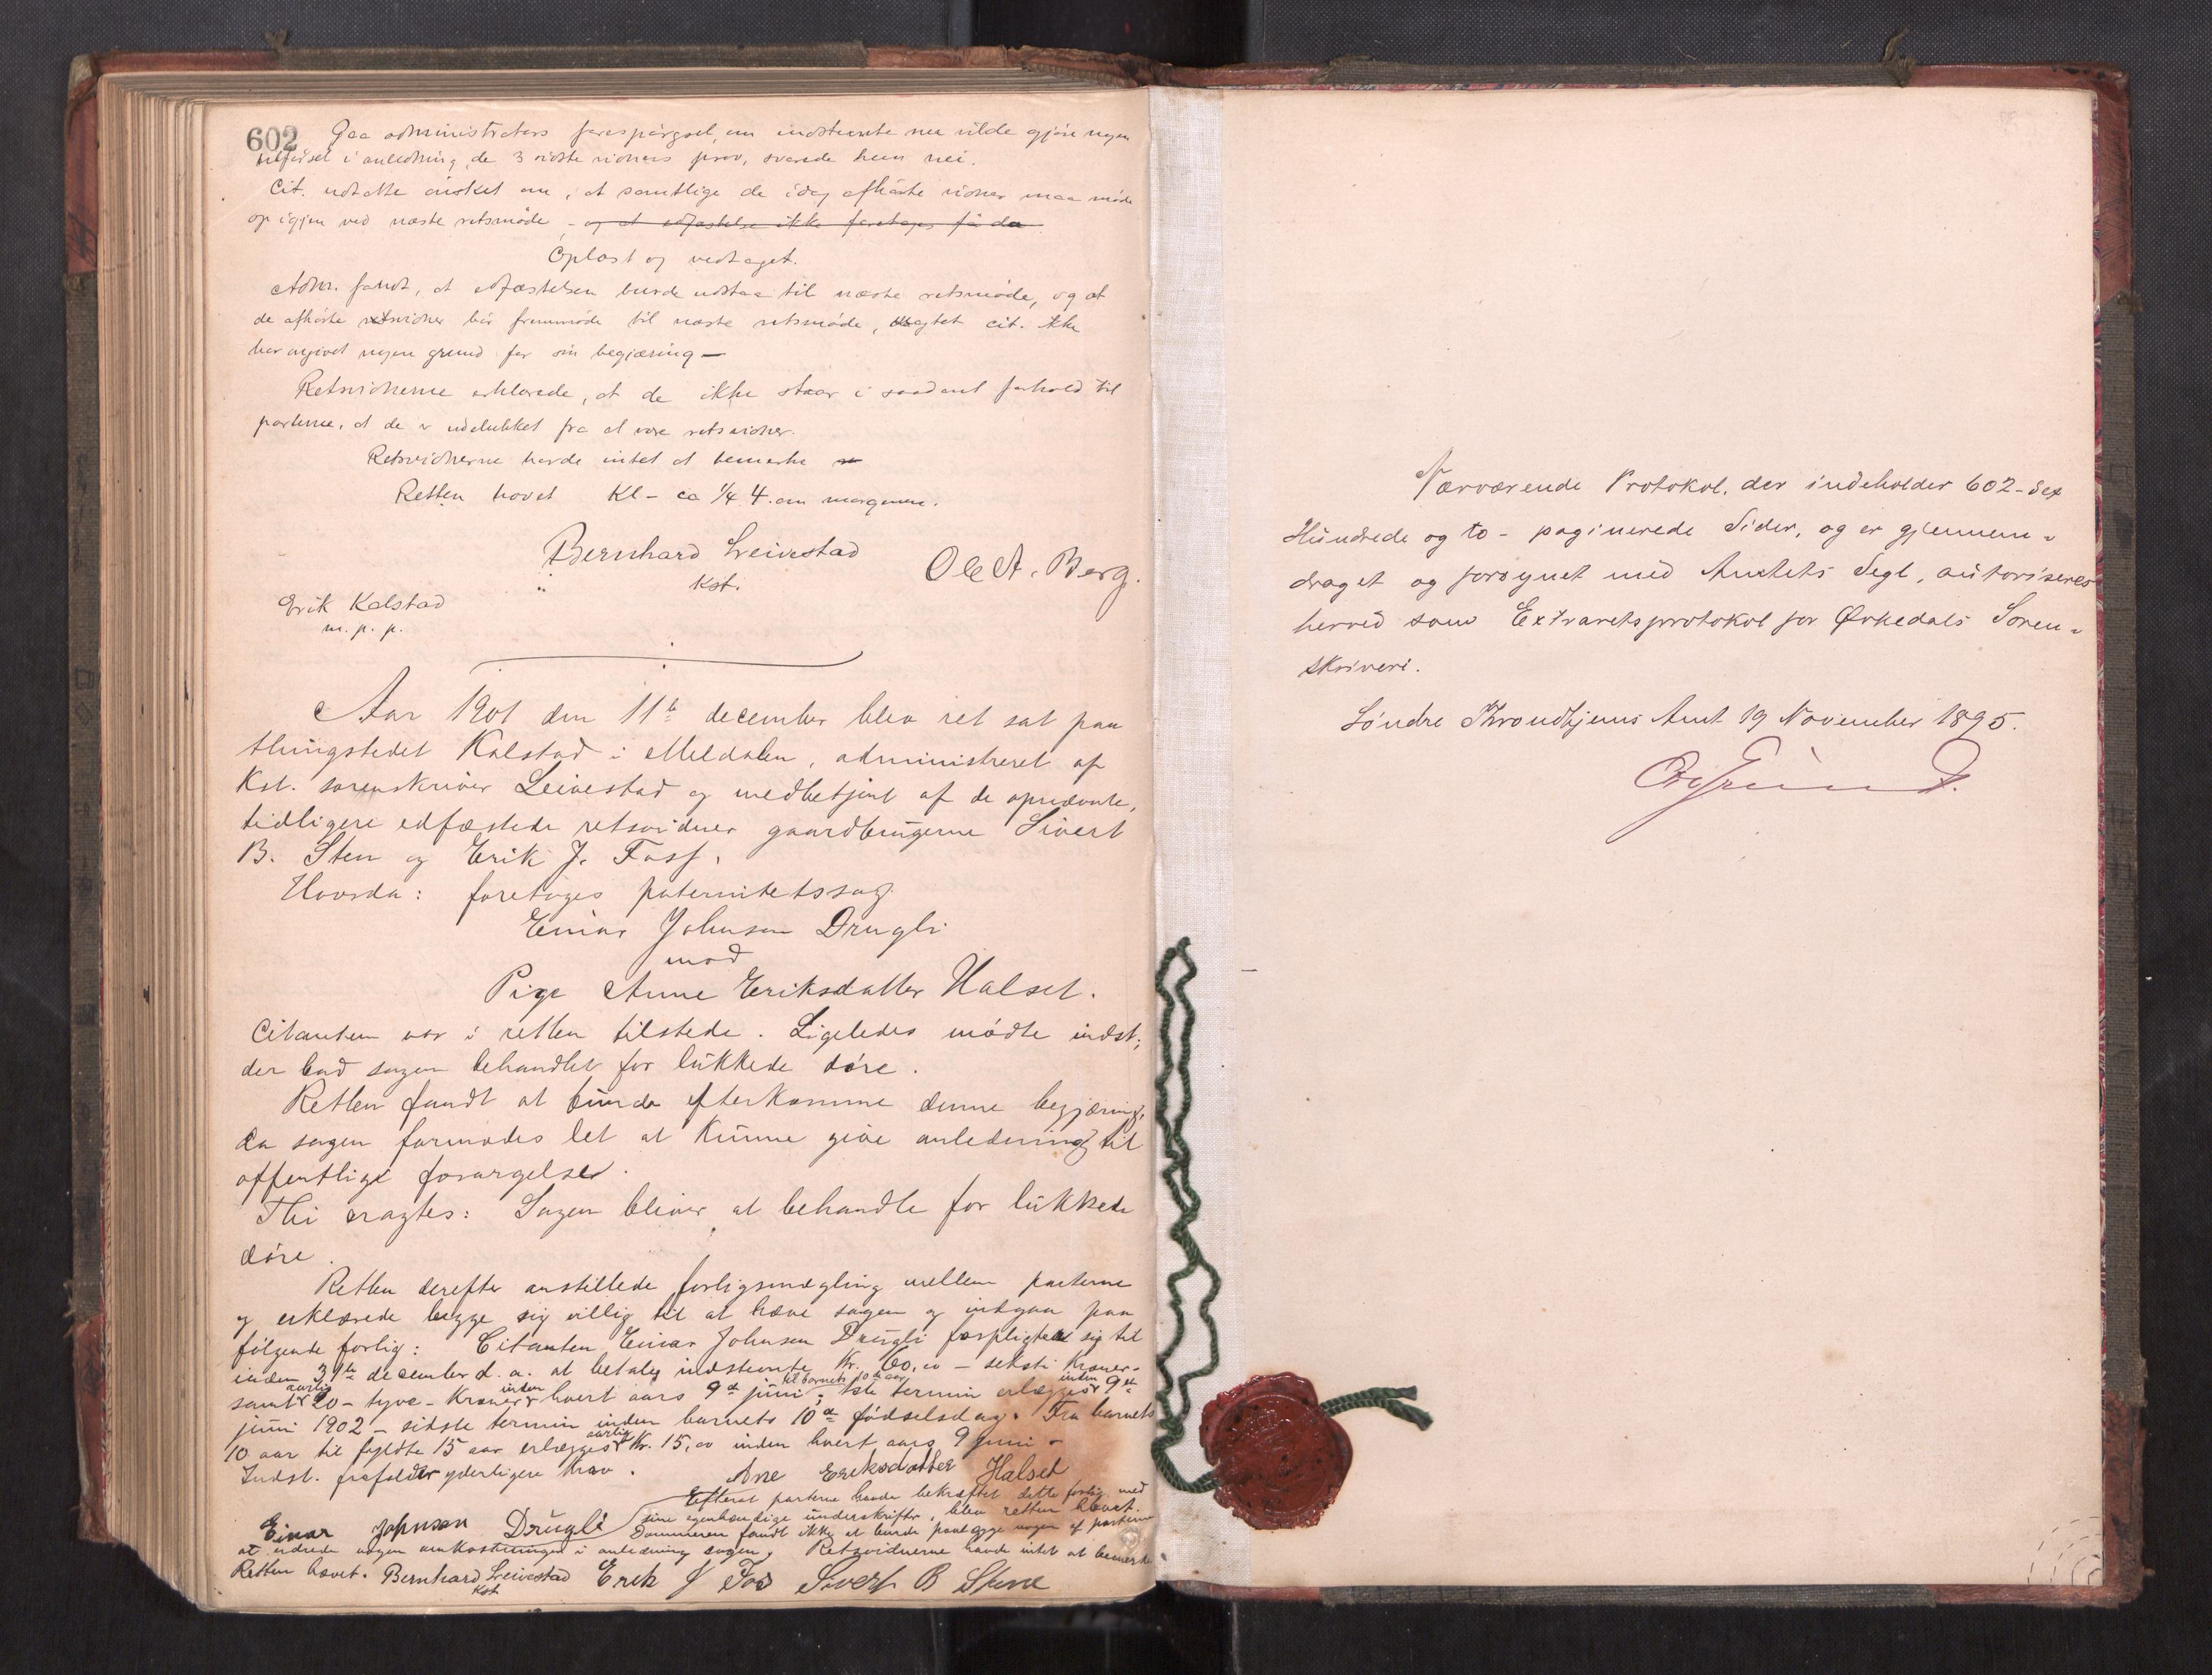 602
Paa administrators forespørgsel, om indstevnte nu vilde gjøre nogen
tilførsel i anledning de 3 sidste vidners prov, svarede hun nei.
Cit. udtalte ønsket om, at samtlige de idag afhørte vidner maa møde
op igjen ved næste retsmøde, - og at edfæstelse ikke foretages før da.
Oplæst og vedtaget.
Adm. fandt, at edfæstelsen burde udstaa til næste retsmøde, og at
de afhørte vidner bør fremmøde til næste retsmøde, uagtet cit. ikke
har angivet nogen grund for sin begjæring —
Retsvidnerne erklærede, at de ikke staar i saadant forhold til
parterne, at de er udelukket fra at være retsvidner.
Retsvidnerne havde intet at bemærke
Retten hævet Kl - ca 1/4 4. om morgenen.
Bernhard Leivestad
Kst.
Ole A. Berg.
Erik Kalstad
m. p. p.
Aar 1901 den 11te december blev ret sat paa
thingstedet Kalstad i Meldalen, administreret af
Kst. sorenskriver Leivestad og medbetjent af de opnævnte,
tidligere edfæstede retsvidner gaardbrugerne Sivert
B. Sten og Erik J. Fosf.
Hvorda: foretoges paternitetssag
Einar Johnsen Drugli
mod
Pige Anne Eriksdatter Halset.
Citanten var i retten tilstede. Ligeledes mødte indst.,
der bad sagen behandlet for lukkede døre.
Retten fandt at burde efterkomme denne begjæring,
da sagen formodes let at kunne give anledning til
offentlige forargelse.
Thi eragtes: Sagen bliver at behandle for lukkede
døre.
Retten derefter anstillede forligsmægling mellem parterne
og erklærede begge sig villig til at hæve sagen og indgaa paa
følgende forlig: Citanten Einar Johnsen Drugli forpligter sig til
inden 31te december d. a. at betale indstevnte Kr. 60,00 - seksti Kroner -
samt aarlig 20 - tyve - Kroner inden hvert aars 9de juni til barnets 10de aar; 1ste termin erlægges inden 9de
juni 1902 - sidste termin inden barnets 10de fødselsdag. Fra barnets
10 aar til fyldte 15 aar erlægges aarlig Kr. 15,00 inden hvert aars 9 juni -
Indst. frafalder yderligere krav.
Ane Eriksdatter Halset
Einar Johnsen Drugli
Efterat parterne havde bekræftet dette forlig med
sine egenhændige underskrifter, blev retten hævet.
Dommeren fandt ikke at burde paalægge nogen af parterne
at udrede nogen omkostninger i anledning sagen. Retsvidnerne havde intet at bemærke
Retten hævet. Bernhard Leivestad Erik J Fos Sivert B Stene
Kst
Nærværende Protokol, der indeholder 602 - Sex
Hundrede og to - paginerede Sider, og er gjennem-
draget og forsynet med Amtets Segl, autoriseres
herved som Extraretsprotokol for Ørkedals Soren-
skriveri.
Søndre Throndhjems Amt 19 November 1895.